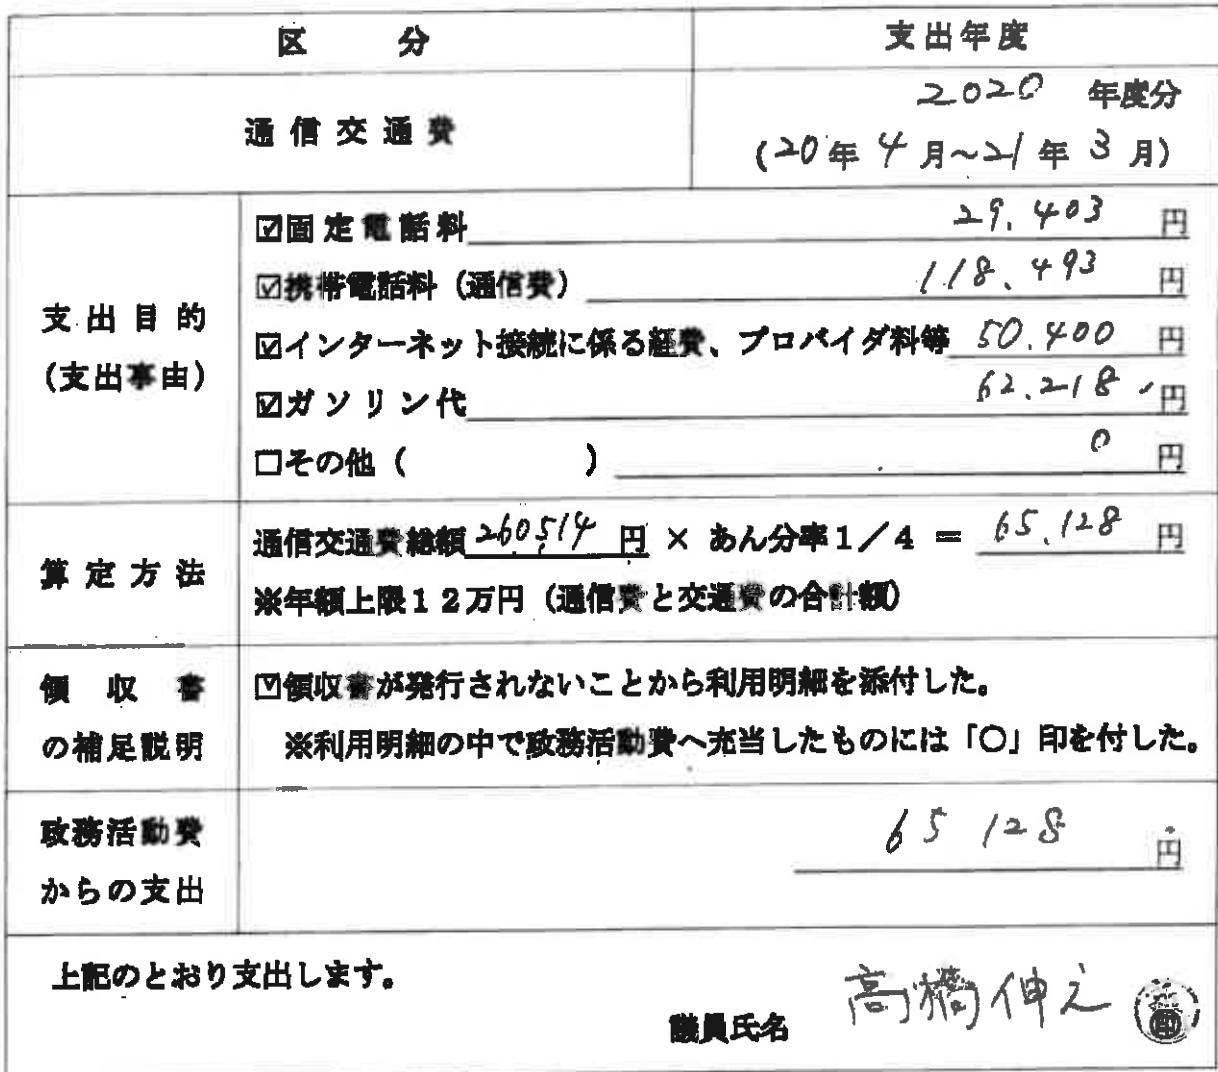 区 分
支出年度
通信交通費
2020 年度分
(20年 4月～21年 3月)
支出目的
(支出事由)
☑固定電話料 29,403 円
☑携帯電話料（通信費） 118,493 円
☑インターネット接続に係る経費、プロバイダ料等 50,400 円
☑ガソリン代 62,218 円
□その他（ ） 0 円
算定方法
通信交通費総額 260,514 円 × あん分率1／4 ＝ 65,128 円
※年額上限12万円（通信費と交通費の合計額）
領収書
の補足説明
☑領収書が発行されないことから利用明細を添付した。
※利用明細の中で政務活動費へ充当したものには「○」印を付した。
政務活動費
からの支出
65 128 円
上記のとおり支出します。
議員氏名 高橋伸之 印